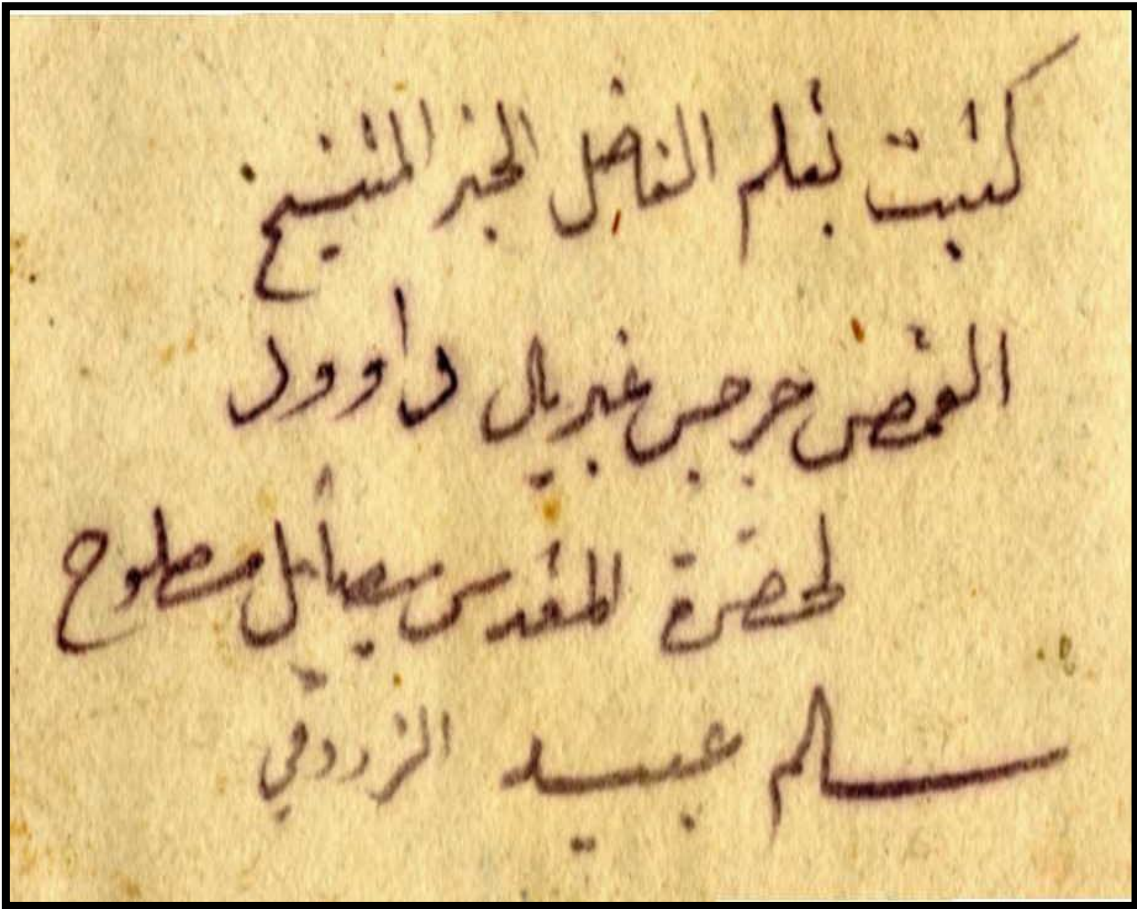 كتبت بقلم الفاضل الخبر المتنيح
القمص جرجس غبريال داوود
لحضرة المقدس ميصائيل مصلوح
سالم عبيد الزردقي